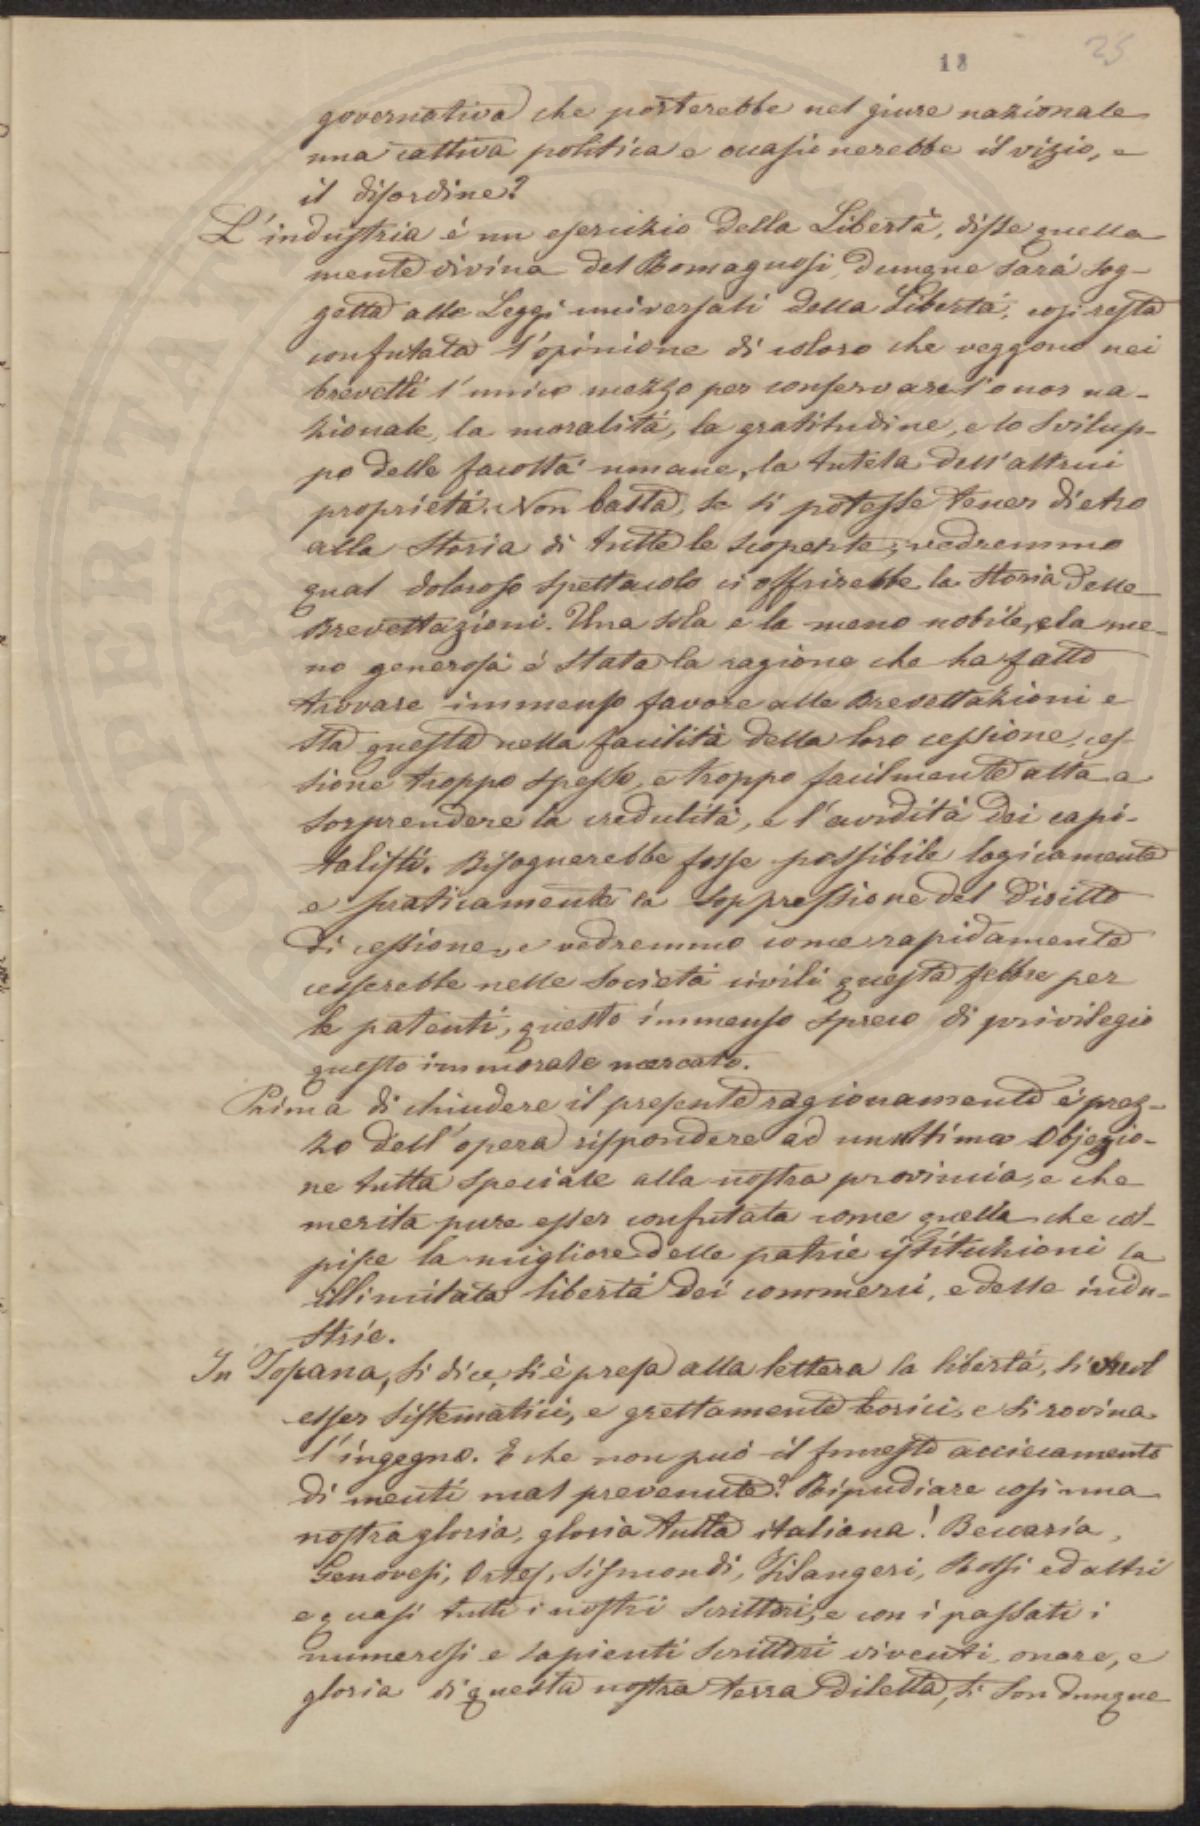 18
25
governativa che porterebbe nel giure nazionale
una cattiva politica e ocasionerebbe il vizio, e
il disordine?
L'industria é un esercizio della Libertà, disse quella
mente divina del Romagnosi, dunque sarà sog-
getta alle Leggi universali della Libertà; così resta
confutata l'opinione di coloro che veggono nei
brevetti l'unico mezzo per conservare l'onor na-
zionale, la moralità, la gratitudine, e lo svilup-
po delle facoltà umane, la tutela dell'altrui
proprietà. Non basta, se si potesse tener dietro
alla Storia di tutte le scoperte, vedremmo
qual doloroso spettacolo ci offrirebbe la Storia delle
Brevettazioni. Una sola e la meno nobile, e la me-
no generosa é stata la ragione che ha fatto
trovare immenso favore alle Brevettazioni e
sta questa nella facilità della loro cessione, ces-
sione troppo spesso, e troppo facilmente atta a
sorprendere la credulità, e l'avidità dei capi-
talisti. Bisognerebbe fosse possibile logicamente
e praticamente la soppressione del Diritto
di cessione, e vedremmo come rapidamente
cesserebbe nelle Società civili questa febbre per
le patenti, questo immenso spreco di privilegio
questo immorale mercato.
Prima di chiudere il presente ragionamento é prez-
zo dell'opera rispondere ad un ultima Objezio-
ne tutta speciale alla nostra provincia, e che
merita pure esser confutata come quella che col-
pisce la migliore delle patrie istituzioni la
illimitata libertà dei commerci, e delle indu-
strie.
In Toscana, si dice, si è presa alla lettera la libertà, si vuol
esser sistematici, e grettamente teorici, e si rovina
l'ingegno. E che non può il funesto acciecamento
di menti mal prevenute? Ripudiare così una
nostra gloria, gloria tutta italiana! Beccaria,
Genovesi, Ortes, Sismondi, Filangeri, Rossi ed altri
e quasi tutti i nostri scrittori, e con i passati i
numerosi e sapienti scrittori viventi, onore, e
gloria di questa nostra terra diletta, si son dunque